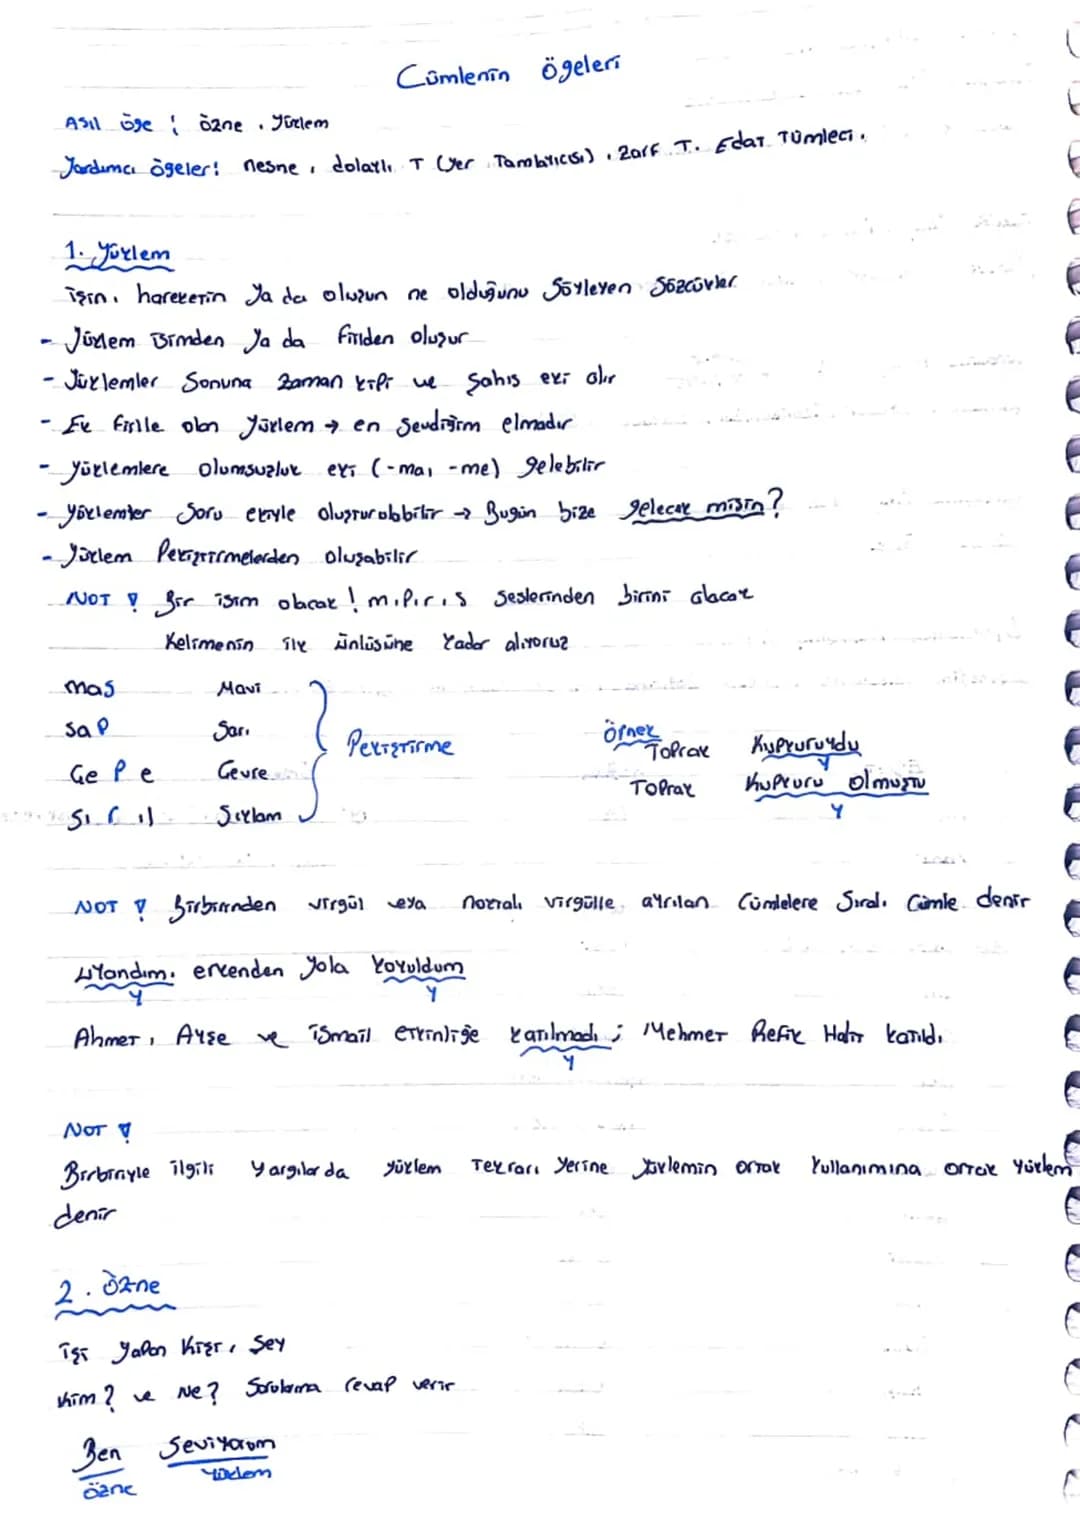 Cümlenin Ögeleri
Asıl öge : özne, Yüklem
Yardımcı ögeler: nesne, dolaylı T (Yer Tamlayıcısı), Zarf T. Edat Tümleci.
1. Yüklem
işin, hareketin Ya da oluşun ne olduğunu Söyleyen Sözcükler.
- Yüklem isimden Ya da fiilden oluşur
- Yüklemler Sonuna Zaman kipi ve Şahıs eki alır
- Ek fiille olan Yüklem → en Sevdiğim elmadır
- Yüklemlere olumsuzluk eki (-ma, -me) gelebilir
- Yüklemler Soru ekiyle oluşturulabilir → Bugün bize gelecek misin?
- Yüklem Pekiştirmelerden oluşabilir
NOT ! Bir isim olacak! m,p,r,s Seslerinden birini alacak
Kelimenin ilk ünlüsüne kadar alıyoruz
mas Mavi
Sap Sarı
Ge P e Gevre
Sı r ıl Sıklam
Pekiştirme
Örnek
Toprak Kupkuruydu
Y
Toprak Kupkuru olmuştu
Y
NOT ! Birbirinden virgül veya noktalı virgülle ayrılan Cümlelere Sıralı Cümle denir
Uyandım, erkenden Yola Koyuldum
Y Y
Ahmet, Ayşe ve İsmail etkinliğe katılmadı ; Mehmet Refik Halit katıldı
Y
NOT !
Birbiriyle ilgili Yargılarda yüklem Tekrarı Yerine Yüklemin ortak Kullanımına ortak Yüklem
denir
2. Özne
işi Yapan Kişi, Şey
Kim? ve Ne? Sorularına cevap verir
Ben Seviyorum
özne Yüklem